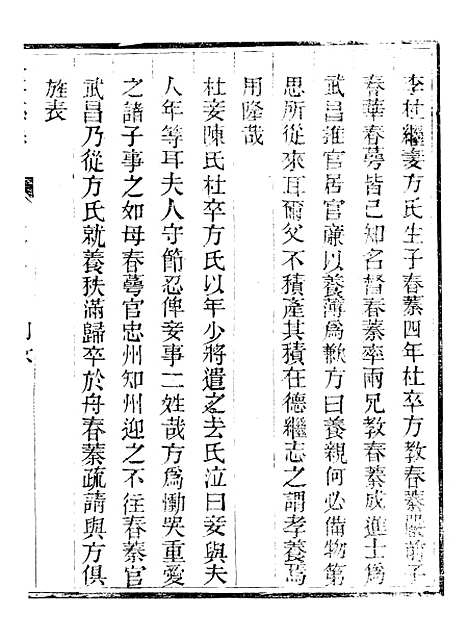 李杜繼妻方氏生子春蓁四年杜卒方教春蓁嚴前子
春華春蕚皆已知名督春蓁率兩兄教春蓁成進士爲
武昌推官居官亷以養薄爲歉方曰養親何必備物第
思所從來耳爾父不積產其積在德繼志之謂孝養焉
用隆哉
杜妾陳氏杜卒方氏以年少將遣之去氏泣曰妾與夫
人年等耳夫人守節忍俾妾事二姓哉方爲慟哭重愛
之諸子事之如母春蕚官忠州知州迎之不往春蓁官
武昌乃從方氏就養秩滿歸卒於舟春蓁疏請與方俱
旌表